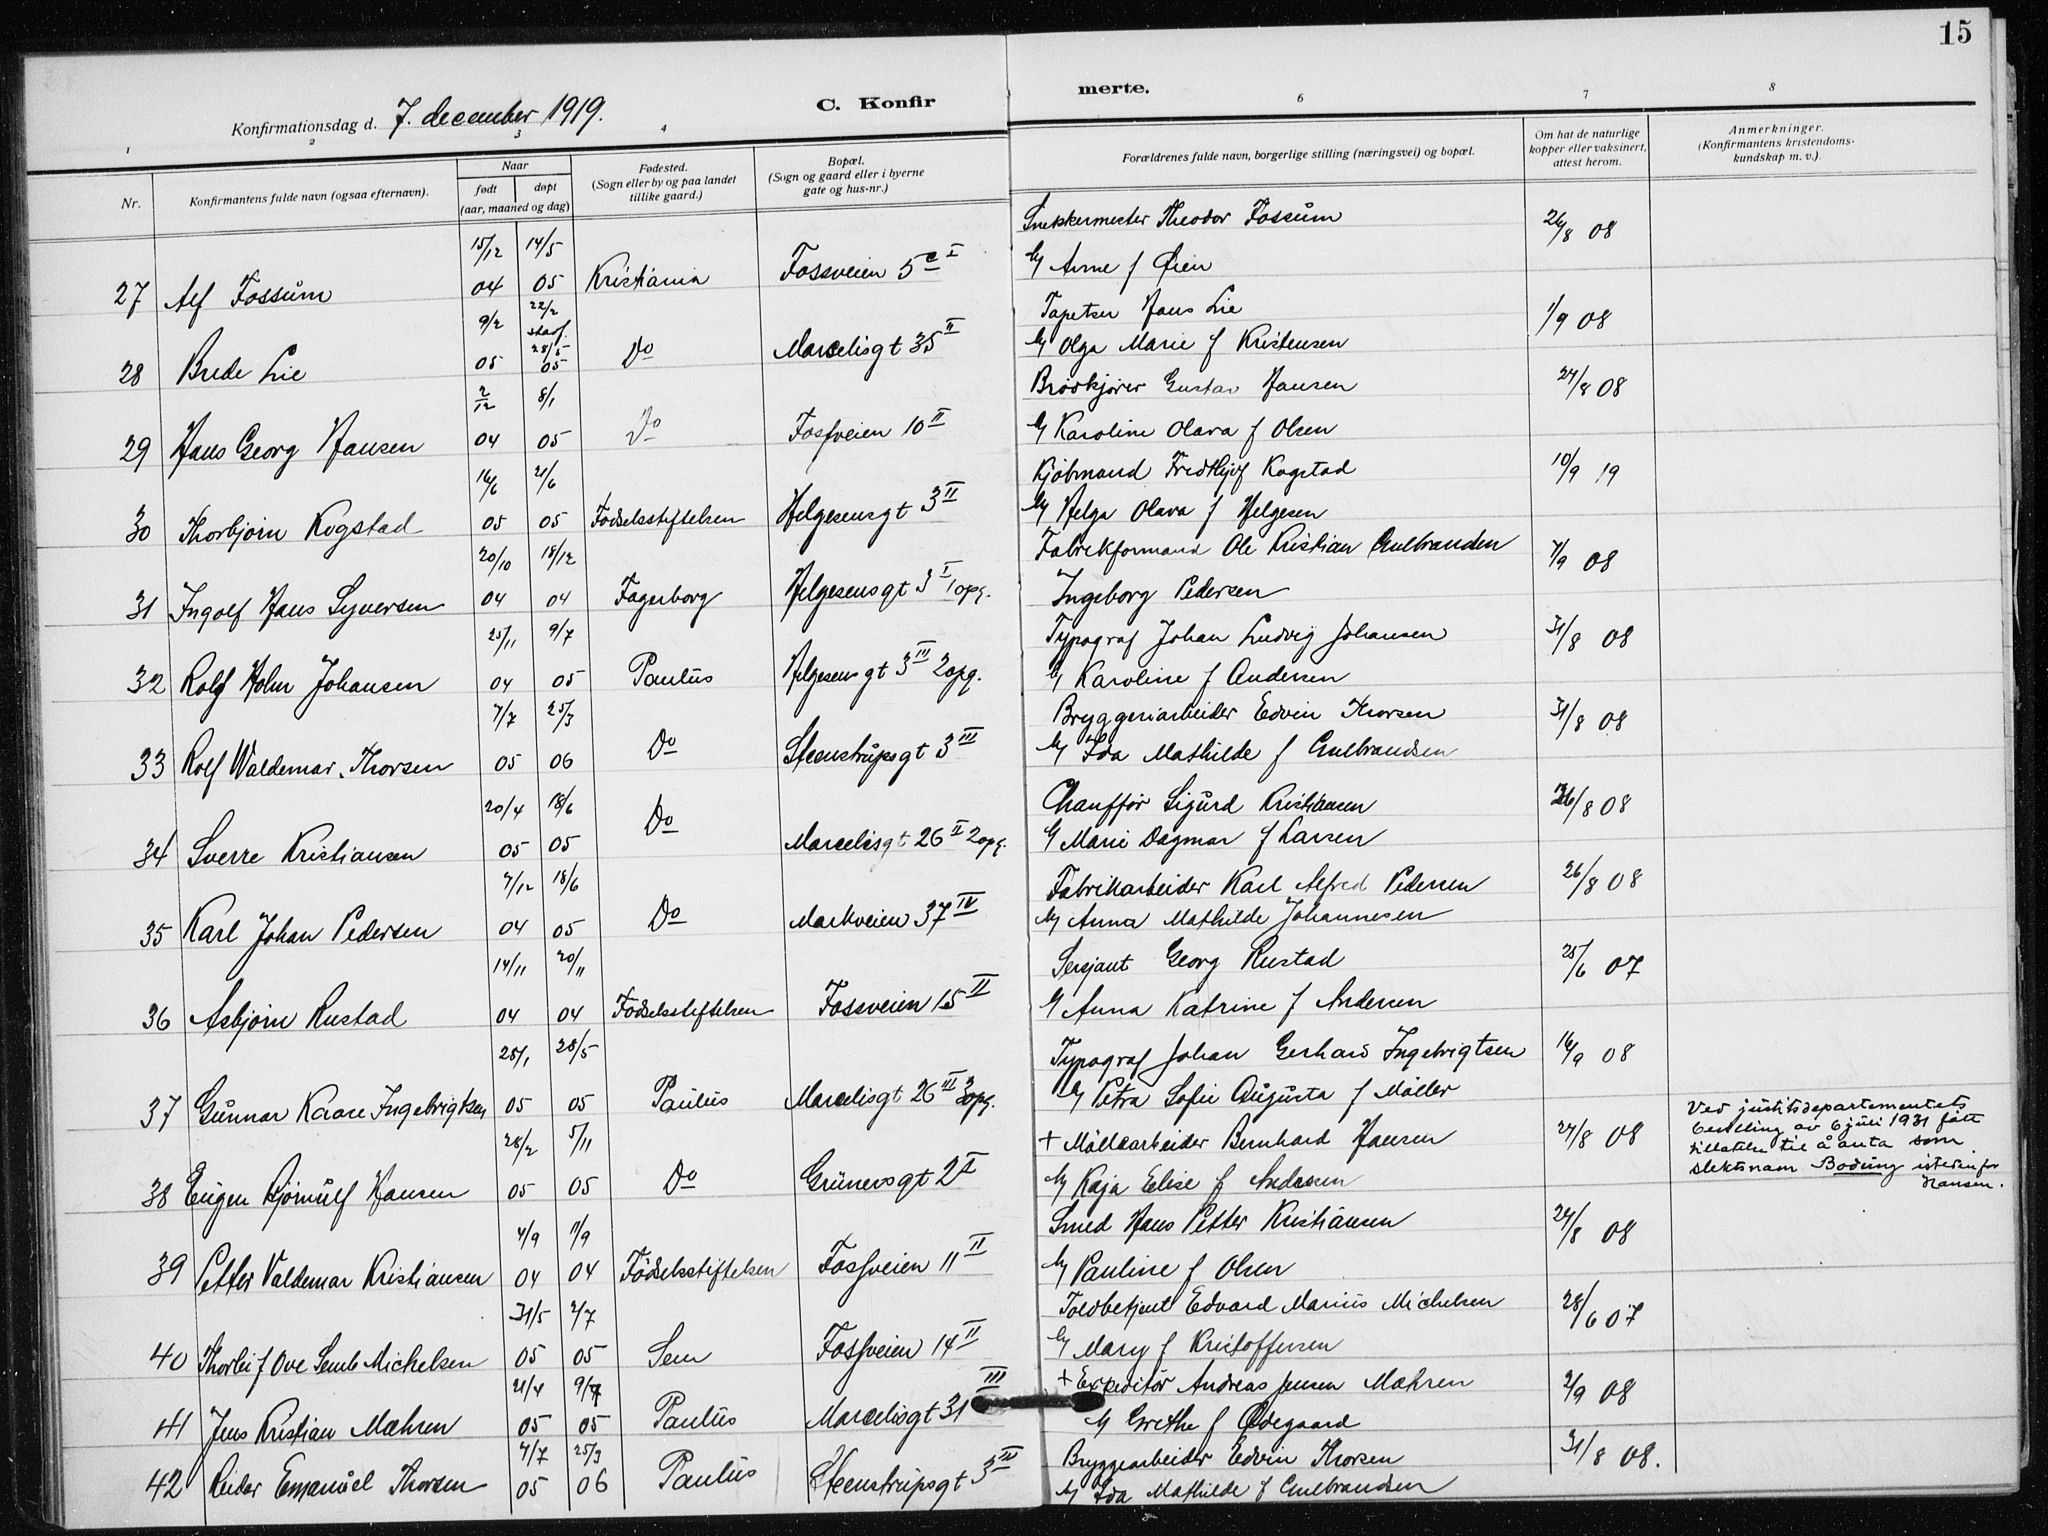 15
Konfirmationsdag d. 7. december 1919.
C. Konfirmerte.
1 2 3 4 6 7 8
Nr.
Konfirmantens fulde navn (ogsaa efternavn).
Naar
født døpt
(aar, maaned og dag)
Fødested.
(Sogn eller by og paa landet
tillike gaard.)
Bopæl.
(Sogn og gaard eller i byerne
gate og hus-nr.)
Forældrenes fulde navn, borgerlige stilling (næringsvei) og bopæl.
Om hat de naturlige
kopper eller vaksinert,
attest herom.
Anmerkninger.
(Konfirmantens kristendoms-
kundskap m. v.).
15/12 14/5 Snekkermester Theodor Fossum 26/8 08
27 Alf Fossum 04 05 Kristiania Fossveien 5 c I Anne f Øien
9/2 22/2 Tapetser Hans Lie 1/9 08
28 Brede Lie 05 28/5 05 Do Marcelisgt 35 II Olga Marie f Kristensen
2/12 8/1 Brödkjörer Gustav Hansen 24/8 08
29 Hans Georg Hansen 04 05 Do Fossveien 10 II Karoline Olava f Olsen
16/6 21/6 Kjöbmand Fredthjof Kogstad 10/9 19
30 Thorbjörn Kogstad 05 05 Födselsstiftelsen Helgesensgt 3 II Helga Olava f Helgesen
20/10 18/12 Fabrikformand Ole Kristian Gulbrandsen 7/9 08
31 Ingolf Hans Syversen 04 04 Fagerborg Helgesensgt 3 I 1 opg. Ingeborg Pedersen
25/11 9/7 Typograf Johan Ludvig Johansen 31/8 08
32 Rolf Holm Johansen 04 05 Paulus Helgesensgt 3 III 2 opg. Karoline f Andersen
7/7 25/3 Bryggeriarbeider Edvin Thorsen 31/8 08
33 Rolf Waldemar Thorsen 05 06 Do Steenstrupsgt 3 III Ida Mathilde f Gulbrandsen
20/4 18/6 Chauffør Sigurd Kristiansen 26/8 08
34 Sverre Kristiansen 05 05 Do Marcelisgt 26 II 2 opg. Marie Dagmar f Larsen
7/12 18/6 Fabrikarbeider Karl Alfred Pedersen 26/8 08
35 Karl Johan Pedersen 04 05 Do Markveien 37 IV Anna Mathilde Johannesen
14/11 20/11 Sersjant Georg Rustad 25/6 07
36 Asbjörn Rustad 04 04 Födselsstiftelsen Fossveien 15 II Anna Katrine f Andersen
28/1 28/5 Typograf Johan Gerhard Ingebrigtsen 16/9 08
37 Gunnar Kaare Ingebrigtsen 05 05 Paulus Marcelisgt 26 III opg. Petra Sofie Augusta f Möller
28/2 5/11 + Möllearbeider Bernhard Hansen 24/8 08
Ved justitsdepartementets
bevilling av 6 juli 1931 fått
tillatelse til å anta som
slektsnam Bodung istedenfor
Hansen.
38 Eugen Björnulf Hansen 05 05 Do Grünersgt 2 I Kaja Elise f Andersen
4/9 1/9 Smed Hans Petter Kristiansen 24/8 08
39 Petter Valdemar Kristiansen 04 04 Födselsstiftelsen Fossveien 11 II Pauline f Olsen
31/5 2/7 Toldbetjent Edvard Marius Michelsen 28/6 07
40 Thorleif Ove Semb Michelsen 05 05 Sem Fossveien 14 II Mary f Kristoffersen
21/4 9/7 + Expeditör Andreas Jensen Mæhren 2/9 08
41 Jens Kristian Mæhren 05 05 Paulus Marcelisgt 31 III Grethe f Ødegaard
7/7 25/3 Bryggearbeider Edvin Thorsen 31/8 08.
42 Reidar Emanuel Thorsen 05 06 Paulus Steenstrupsgt 3 III Ida Mathilde f Gulbrandsen